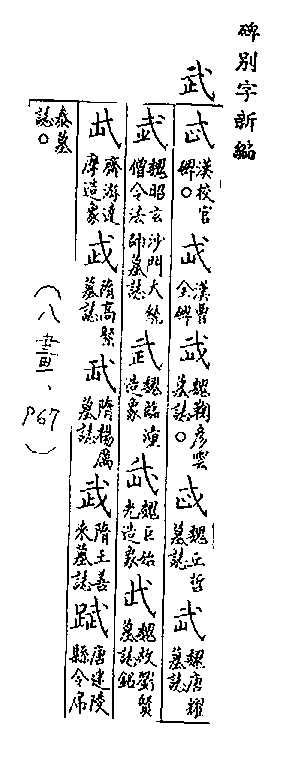 碑別字新編
武
漢校官碑。
漢曹全碑
魏鞠彥雲墓誌。
魏丘哲墓誌
武魏唐耀墓誌
武魏昭玄沙門大統僧令法師墓誌
武魏臨湞造象
武魏巨始光造象
武魏故劉賢墓誌銘
齊游達摩造象
隋高緊墓誌
武隋楊厲墓誌
武隋王善來墓誌
唐建陵縣令席
泰墓誌。
(八畫、P67)